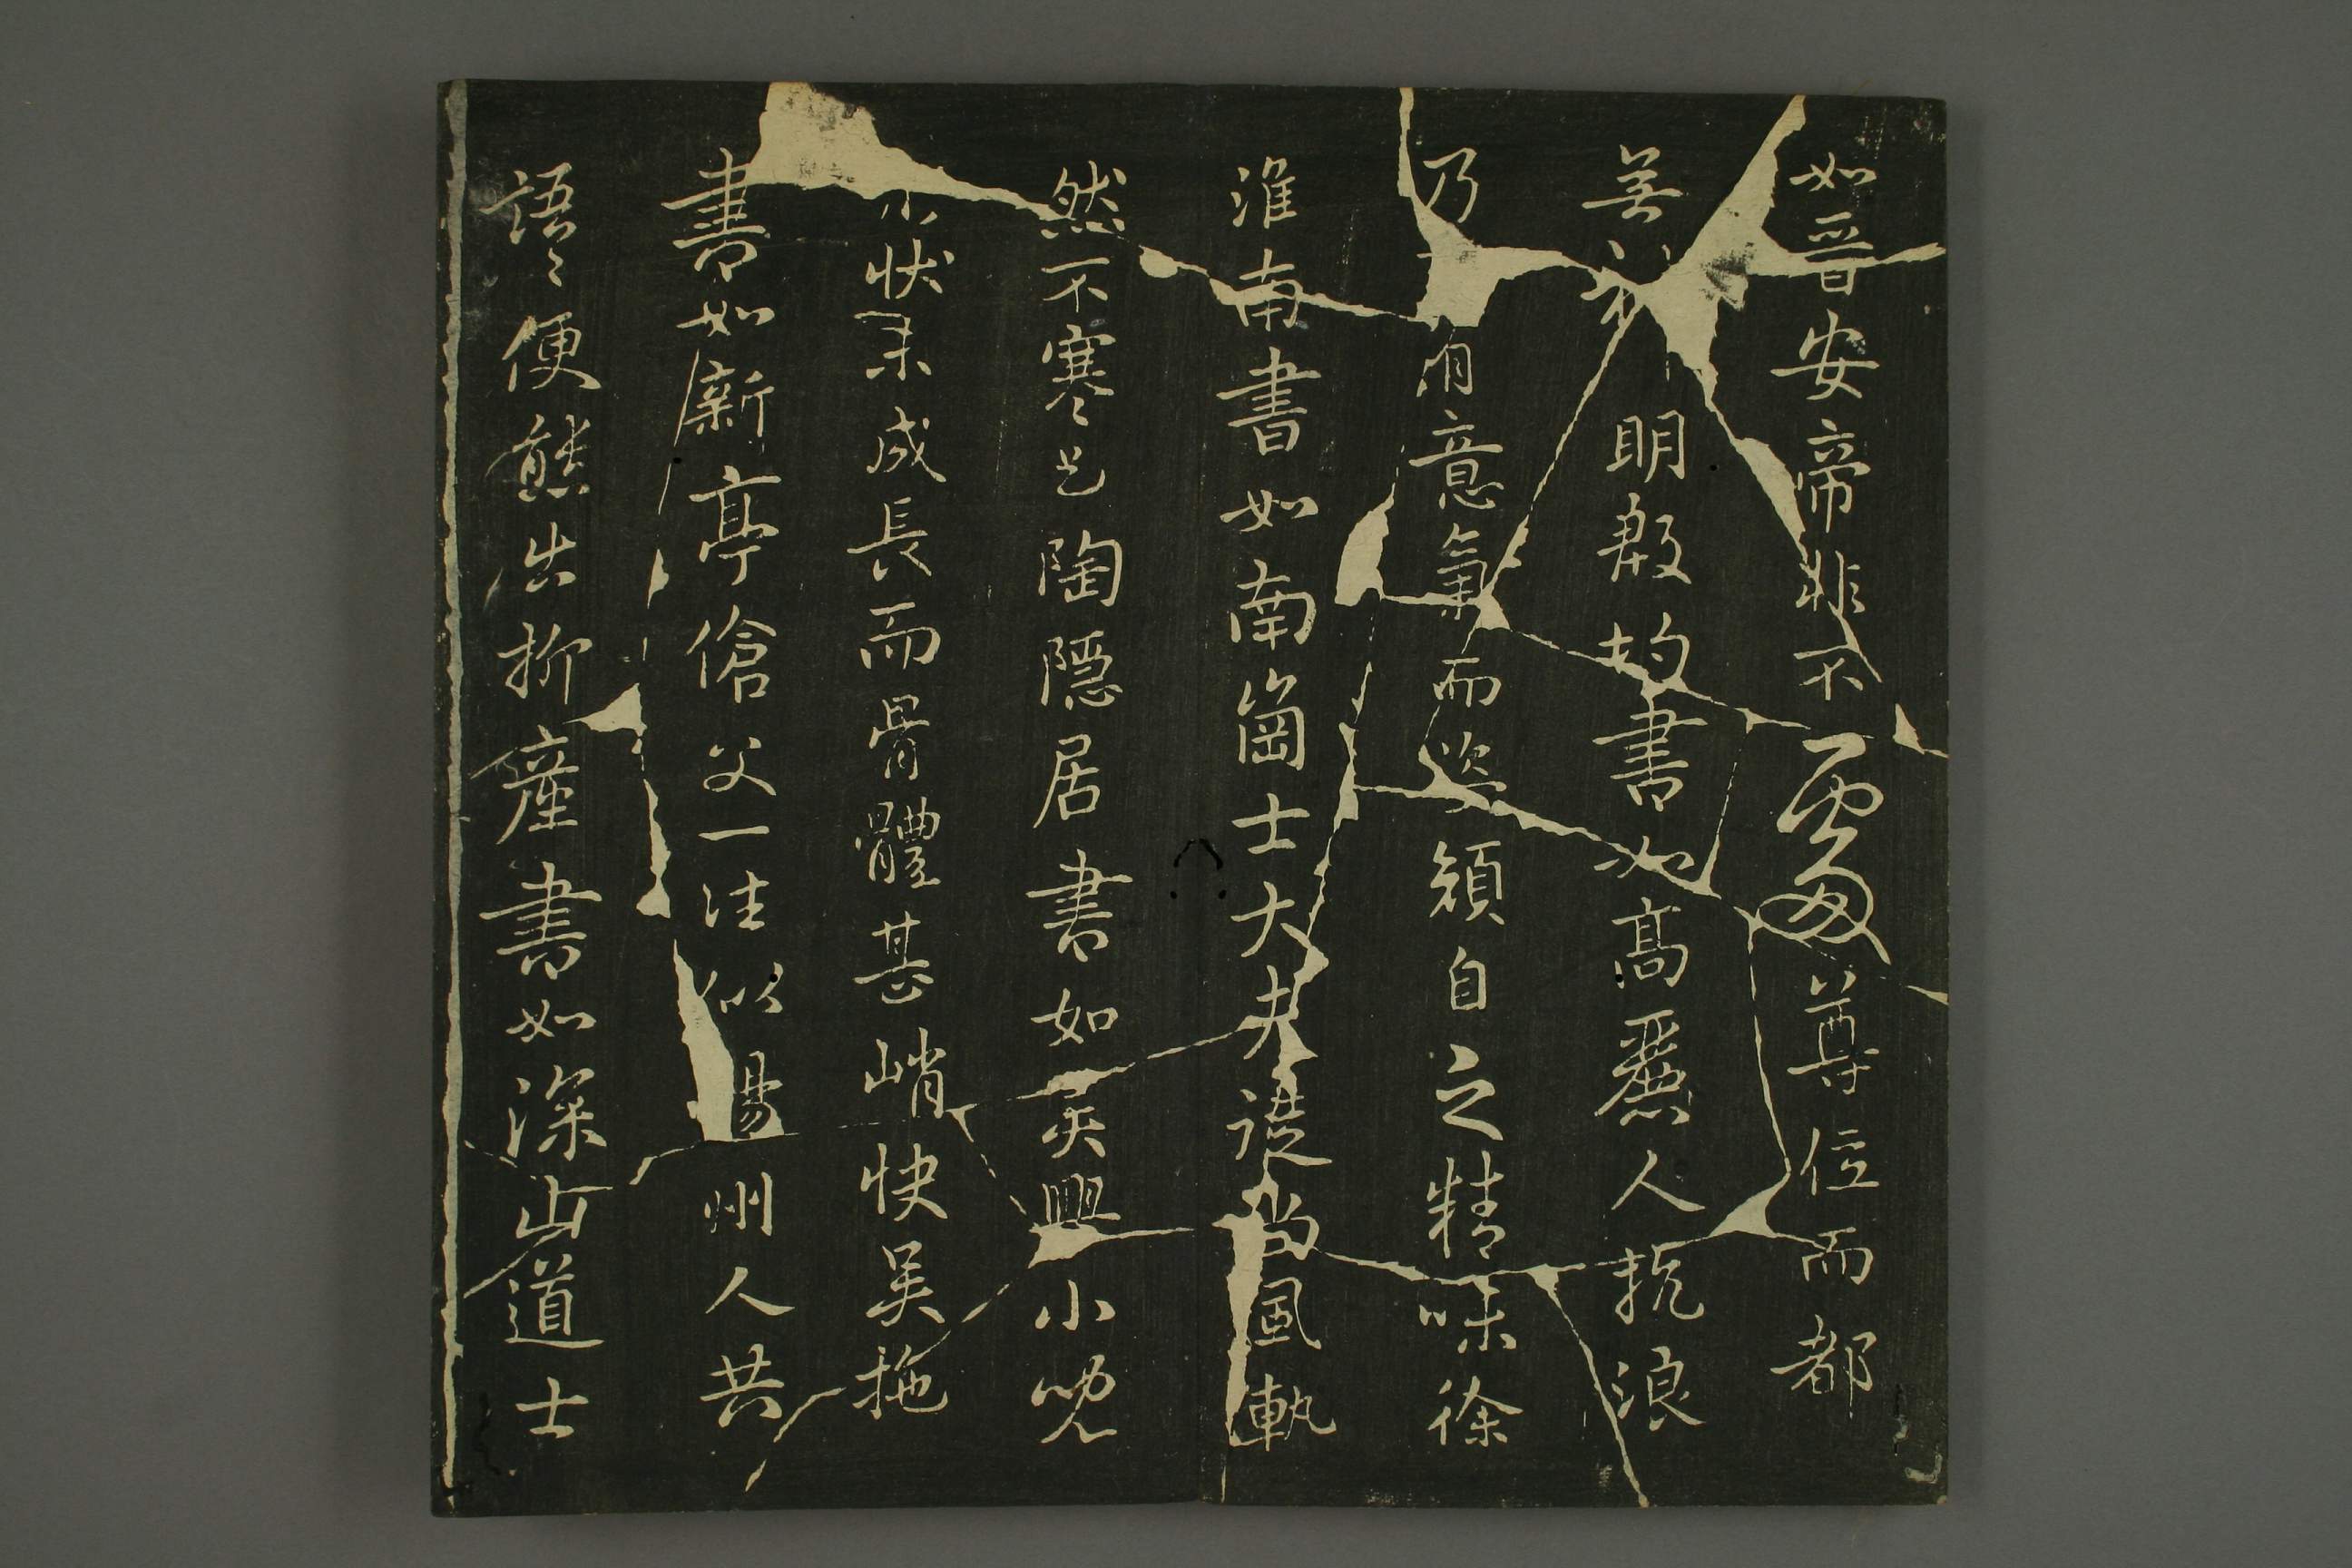 如晉安帝非不處尊位而都
無明殷均書如高麗人抗浪
乃有意氣而姿顏自乏精味徐
淮南書如南崗士大夫徒尚風軌
然不寒乞陶隱居書如吳興小兒
狀未成長而骨體甚峭快吳拖
書如新亭傖父一往似揚州人共
語〻便態出柳產書如深山道士